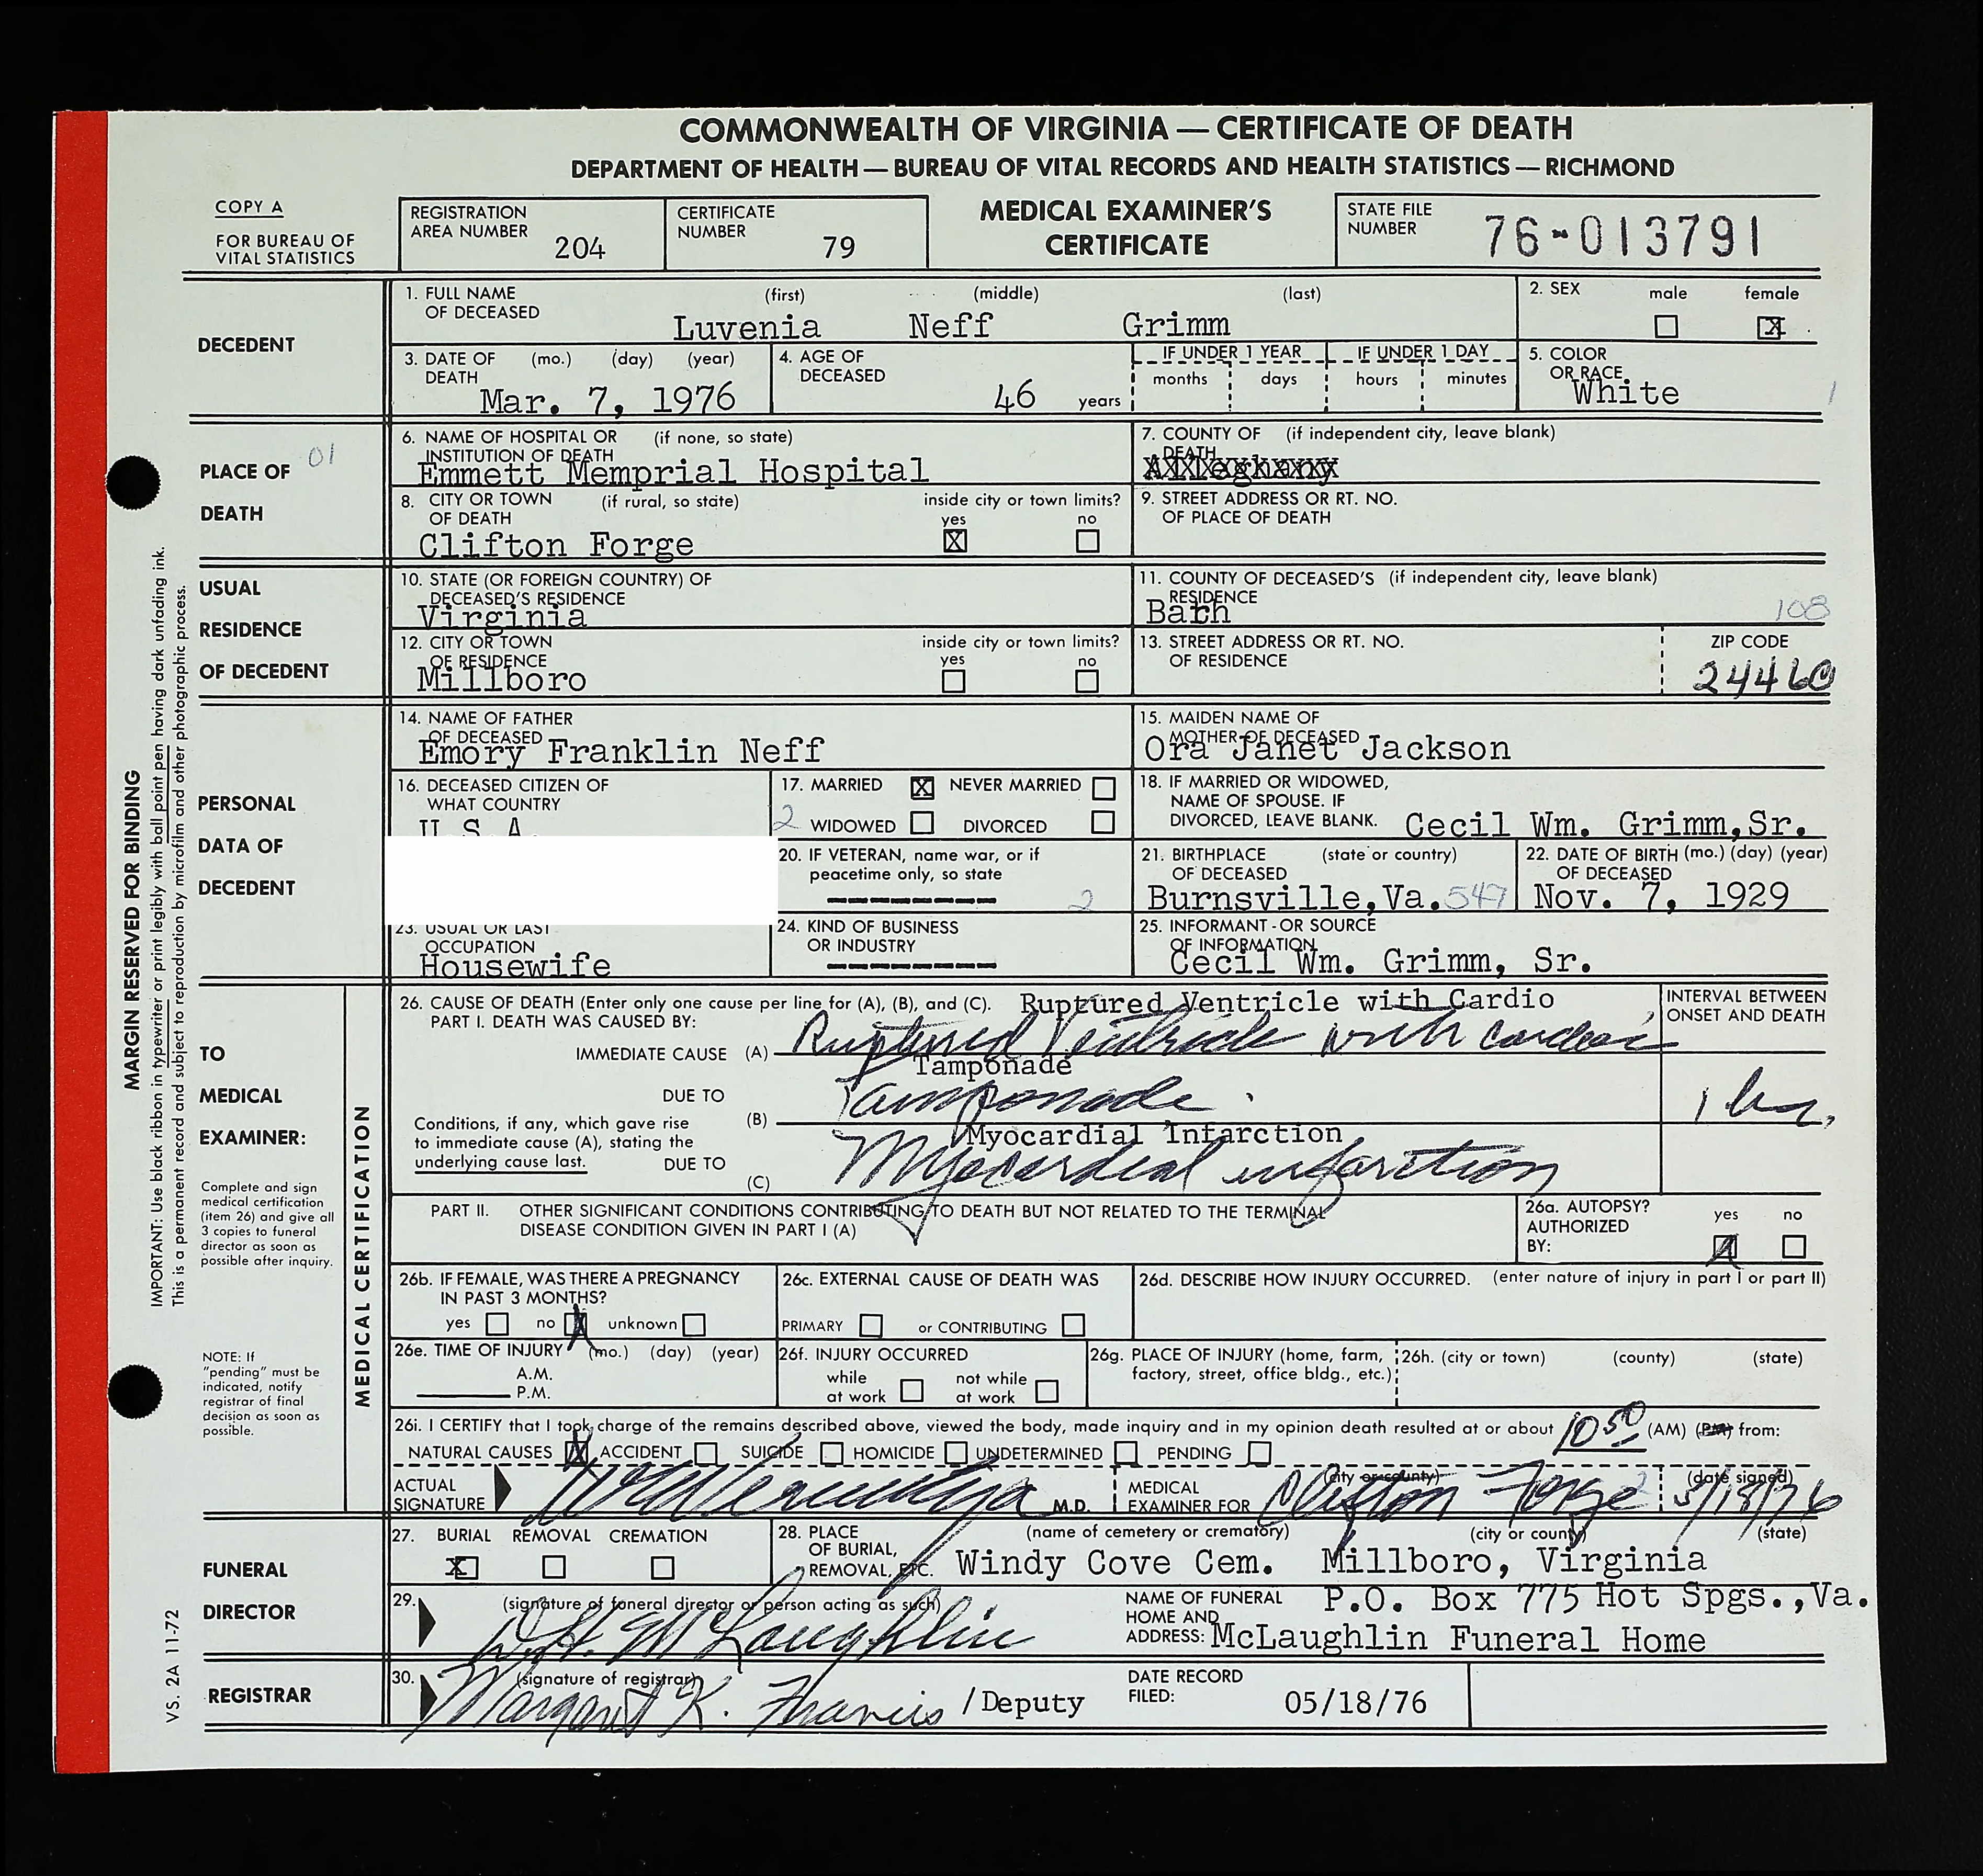 COMMONWEALTH OF VIRGINIA — CERTIFICATE OF DEATH
DEPARTMENT OF HEALTH — BUREAU OF VITAL RECORDS AND HEALTH STATISTICS — RICHMOND
COPY A
FOR BUREAU OF
VITAL STATISTICS
REGISTRATION
AREA NUMBER 204
CERTIFICATE
NUMBER 79
MEDICAL EXAMINER'S
CERTIFICATE
STATE FILE
NUMBER 76-013791
DECEDENT
1. FULL NAME (first) (middle) (last)
OF DECEASED
Luvenia Neff Grimm
2. SEX male female
X
3. DATE OF (mo.) (day) (year)
DEATH
Mar. 7, 1976
4. AGE OF
DECEASED
46 years
IF UNDER 1 YEAR IF UNDER 1 DAY
months days hours minutes
5. COLOR
OR RACE
White 1
PLACE OF 01
DEATH
6. NAME OF HOSPITAL OR (if none, so state)
INSTITUTION OF DEATH
Emmett Memprial Hospital
7. COUNTY OF (if independent city, leave blank)
DEATH
Alleghany
8. CITY OR TOWN (if rural, so state) inside city or town limits?
OF DEATH yes no
Clifton Forge X
9. STREET ADDRESS OR RT. NO.
OF PLACE OF DEATH
USUAL
RESIDENCE
OF DECEDENT
10. STATE (OR FOREIGN COUNTRY) OF
DECEASED'S RESIDENCE
Virginia
11. COUNTY OF DECEASED'S (if independent city, leave blank)
RESIDENCE
Bath 108
12. CITY OR TOWN inside city or town limits?
OF RESIDENCE yes no
Millboro
13. STREET ADDRESS OR RT. NO. ZIP CODE
OF RESIDENCE
24460
PERSONAL
DATA OF
DECEDENT
14. NAME OF FATHER
OF DECEASED
Emory Franklin Neff
15. MAIDEN NAME OF
MOTHER OF DECEASED
Ora Janet Jackson
16. DECEASED CITIZEN OF
WHAT COUNTRY
U.S.A.
17. MARRIED X NEVER MARRIED
2 WIDOWED DIVORCED
18. IF MARRIED OR WIDOWED,
NAME OF SPOUSE. IF
DIVORCED, LEAVE BLANK. Cecil Wm. Grimm,Sr.
20. IF VETERAN, name war, or if
peacetime only, so state
2
21. BIRTHPLACE (state or country)
OF DECEASED
Burnsville,Va. 547
22. DATE OF BIRTH (mo.) (day) (year)
OF DECEASED
Nov. 7, 1929
23. USUAL OR LAST
OCCUPATION
Housewife
24. KIND OF BUSINESS
OR INDUSTRY
25. INFORMANT - OR SOURCE
OF INFORMATION
Cecil Wm. Grimm, Sr.
TO
MEDICAL
EXAMINER:
Complete and sign
medical certification
(item 26) and give all
3 copies to funeral
director as soon as
possible after inquiry.
NOTE: If
"pending" must be
indicated, notify
registrar of final
decision as soon as
possible.
MEDICAL CERTIFICATION
26. CAUSE OF DEATH (Enter only one cause per line for (A), (B), and (C). Ruptured Ventricle with Cardio
PART I. DEATH WAS CAUSED BY:
INTERVAL BETWEEN
ONSET AND DEATH
IMMEDIATE CAUSE (A) Ruptured Ventricle with cardiac
Tamponade
DUE TO
(B) Tamponade 1 hr.
Conditions, if any, which gave rise
to immediate cause (A), stating the
underlying cause last. DUE TO
Myocardial Infarction
(C) Myocardial infarction
PART II. OTHER SIGNIFICANT CONDITIONS CONTRIBUTING TO DEATH BUT NOT RELATED TO THE TERMINAL
DISEASE CONDITION GIVEN IN PART I (A)
26a. AUTOPSY? yes no
AUTHORIZED
BY:
26b. IF FEMALE, WAS THERE A PREGNANCY
IN PAST 3 MONTHS?
yes no X unknown
26c. EXTERNAL CAUSE OF DEATH WAS
PRIMARY or CONTRIBUTING
26d. DESCRIBE HOW INJURY OCCURRED. (enter nature of injury in part I or part II)
26e. TIME OF INJURY (mo.) (day) (year)
A.M.
P.M.
26f. INJURY OCCURRED
while not while
at work at work
26g. PLACE OF INJURY (home, farm,
factory, street, office bldg., etc.)
26h. (city or town) (county) (state)
26i. I CERTIFY that I took charge of the remains described above, viewed the body, made inquiry and in my opinion death resulted at or about 10 50 (AM) (PM) from:
NATURAL CAUSES X ACCIDENT SUICIDE HOMICIDE UNDETERMINED PENDING
ACTUAL
SIGNATURE M.D.
MEDICAL
EXAMINER FOR (city or county) Clifton Forge 2
(date signed) 5/18/76
FUNERAL
DIRECTOR
27. BURIAL REMOVAL CREMATION
X
28. PLACE (name of cemetery or crematory) (city or county) (state)
OF BURIAL,
REMOVAL, ETC. Windy Cove Cem. Millboro, Virginia
29. (signature of funeral director or person acting as such)
D.H. McLaughlin
NAME OF FUNERAL P.O. Box 775 Hot Spgs.,Va.
HOME AND
ADDRESS: McLaughlin Funeral Home
REGISTRAR
30. (signature of registrar)
Margaret K. Francis / Deputy
DATE RECORD
FILED: 05/18/76
MARGIN RESERVED FOR BINDING
IMPORTANT: Use black ribbon in typewriter or print legibly with ball point pen having dark unfading ink.
This is a permanent record and subject to reproduction by microfilm and other photographic process.
VS. 2A 11-72